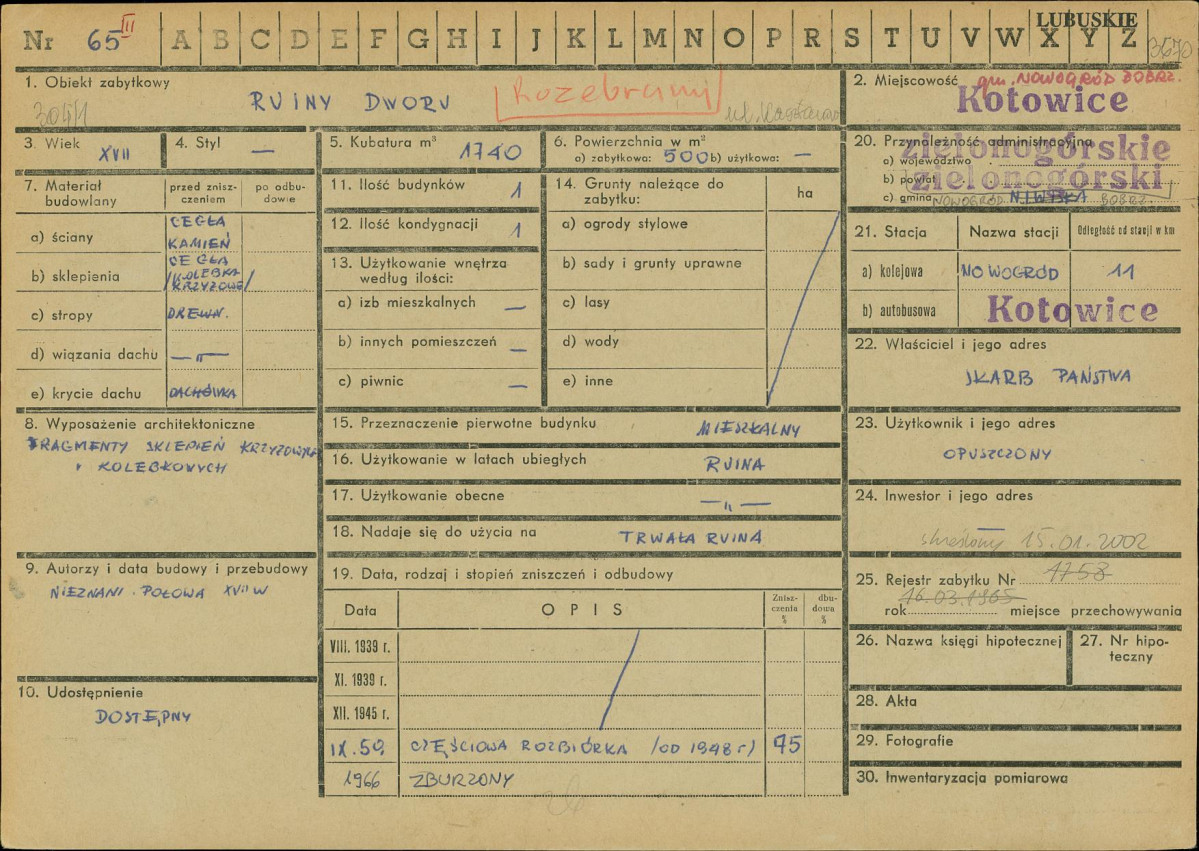 Nr 65 III A B C D E F G H I J K L M N O P R S T U V W X Y Z
LUBUSKIE
3670
1. Obiekt zabytkowy
RUINY DWORU
2. Miejscowość gm. NOWOGRÓD BOBRZ.
Kotowice
3. Wiek XVII
4. Styl —
5. Kubatura m³ 1740
6. Powierzchnia w m²
a) zabytkowa: 500 b) użytkowa: —
20. Przynależność administracyjna
a) województwo zielonogórskie
b) powiat zielonogórski
c) gmina NOWOGRÓD NIWISKA BOBRZ.
7. Materiał budowlany
przed znisz-
czeniem
po odbu-
dowie
a) ściany CEGŁA
KAMIEŃ
b) sklepienia CEGŁA
/KOLEBKA
KRZYŻOWE/
c) stropy DREWN.
d) wiązania dachu —„—
e) krycie dachu DACHÓWKA
11. Ilość budynków 1
12. Ilość kondygnacji 1
13. Użytkowanie wnętrza
według ilości:
a) izb mieszkalnych —
b) innych pomieszczeń —
c) piwnic —
14. Grunty należące do
zabytku:
ha
a) ogrody stylowe
b) sady i grunty uprawne
c) lasy
d) wody
e) inne
21. Stacja Nazwa stacji Odległość od stacji w km
a) kolejowa NOWOGRÓD 11
b) autobusowa Kotowice
22. Właściciel i jego adres
SKARB PAŃSTWA
8. Wyposażenie architektoniczne
FRAGMENTY SKLEPIEŃ KRZYŻOWYCH
i KOLEBKOWYCH
15. Przeznaczenie pierwotne budynku MIESZKALNY
16. Użytkowanie w latach ubiegłych RUINA
17. Użytkowanie obecne —„—
18. Nadaje się do użycia na TRWAŁA RUINA
23. Użytkownik i jego adres
OPUSZCZONY
24. Inwestor i jego adres
—
skreślony 15.01.2002
9. Autorzy i data budowy i przebudowy
NIEZNANI. POŁOWA XVII W
19. Data, rodzaj i stopień zniszczeń i odbudowy
Data OPIS
Znisz-
czenia
%
dbu-
dowa
%
VIII. 1939 r.
XI. 1939 r.
XII. 1945 r.
IX.59 CZĘŚCIOWA ROZBIÓRKA /OD 1948 r/ 75
1966 ZBURZONY
25. Rejestr zabytku Nr 1758
16.03.1965
rok miejsce przechowywania
26. Nazwa księgi hipotecznej
27. Nr hipo-
teczny
10. Udostępnienie
DOSTĘPNY
28. Akta
29. Fotografie
30. Inwentaryzacja pomiarowa